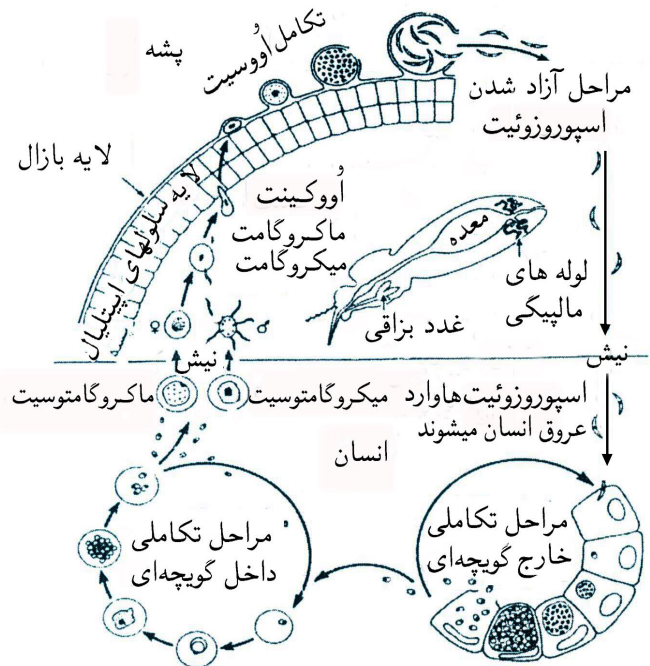 پشه
تکامل اُووسیت
مراحل آزاد شدن
اسپوروزوئیت
لایه بازال
لایه سلولهای اپیتلیال
اُووکینت
ماکروگامت
میکروگامت
معده
لوله های
مالپیگی
غدد بزاقی
نیش
نیش
ماکروگامتوسیت
میکروگامتوسیت
اسپوروزوئیت‌هاوارد
عروق انسان میشوند
انسان
مراحل تکاملی
داخل گویچه‌ای
مراحل تکاملی
خارج گویچه‌ای